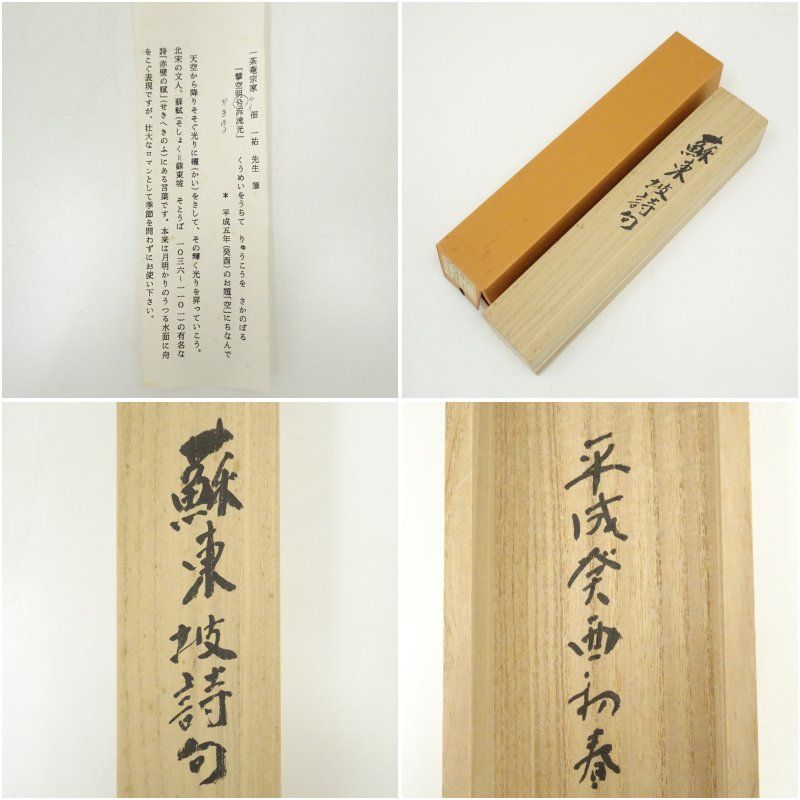 一茶菴宗家 佃 一祐 先生 筆
「撃空明兮泝流光」 くうめいをうちて りゅうこうを さかのぼる
* 平成五年(癸酉)のお題「空」にちなんで
天空から降りそそぐ光りに櫂(かい)をさして、その輝く光りを昇っていこう。
北宋の文人、蘇軾(そしょく=蘇東坡 そとうば 一〇三六-一一〇一)の有名な
詩「赤壁の賦」(せきへきのふ)にある言葉です。本来は月明かりのうつる水面に舟
をこぐ表現ですが、壮大なロマンとして季節を問わずにお使い下さい。
蘇東坡詩句
蘇東坡詩句
平成癸酉初春